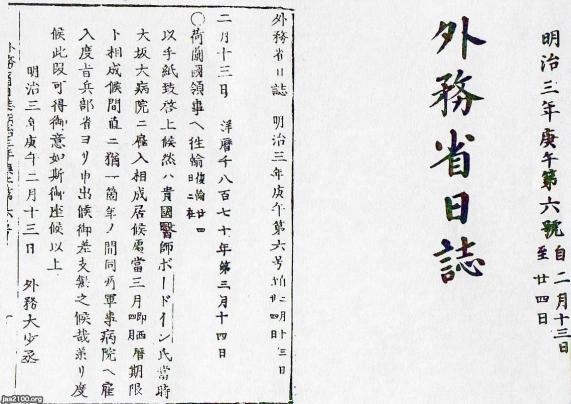 明治三年庚午第六號
自二月十三日
至廿四日
外務省日誌
外務省日誌 明治三年庚午第六号
二月十三日 洋暦千八百七十年第三月十四日
○荷蘭國領事へ往翰復翰廿四日ニ在
以手紙致啓上候然ハ貴國醫師ボードイン氏當時
大坂大病院ニ雇入相成居候處當三月即西暦期限
ト相成候間直ニ猶一箇年ノ間同所軍事病院へ雇
入度旨兵部省ヨリ申出候御差支無之候哉承リ度
候此段可得御意如斯御座候以上
明治三年庚午二月十三日 外務大少丞
Jaa2100.org